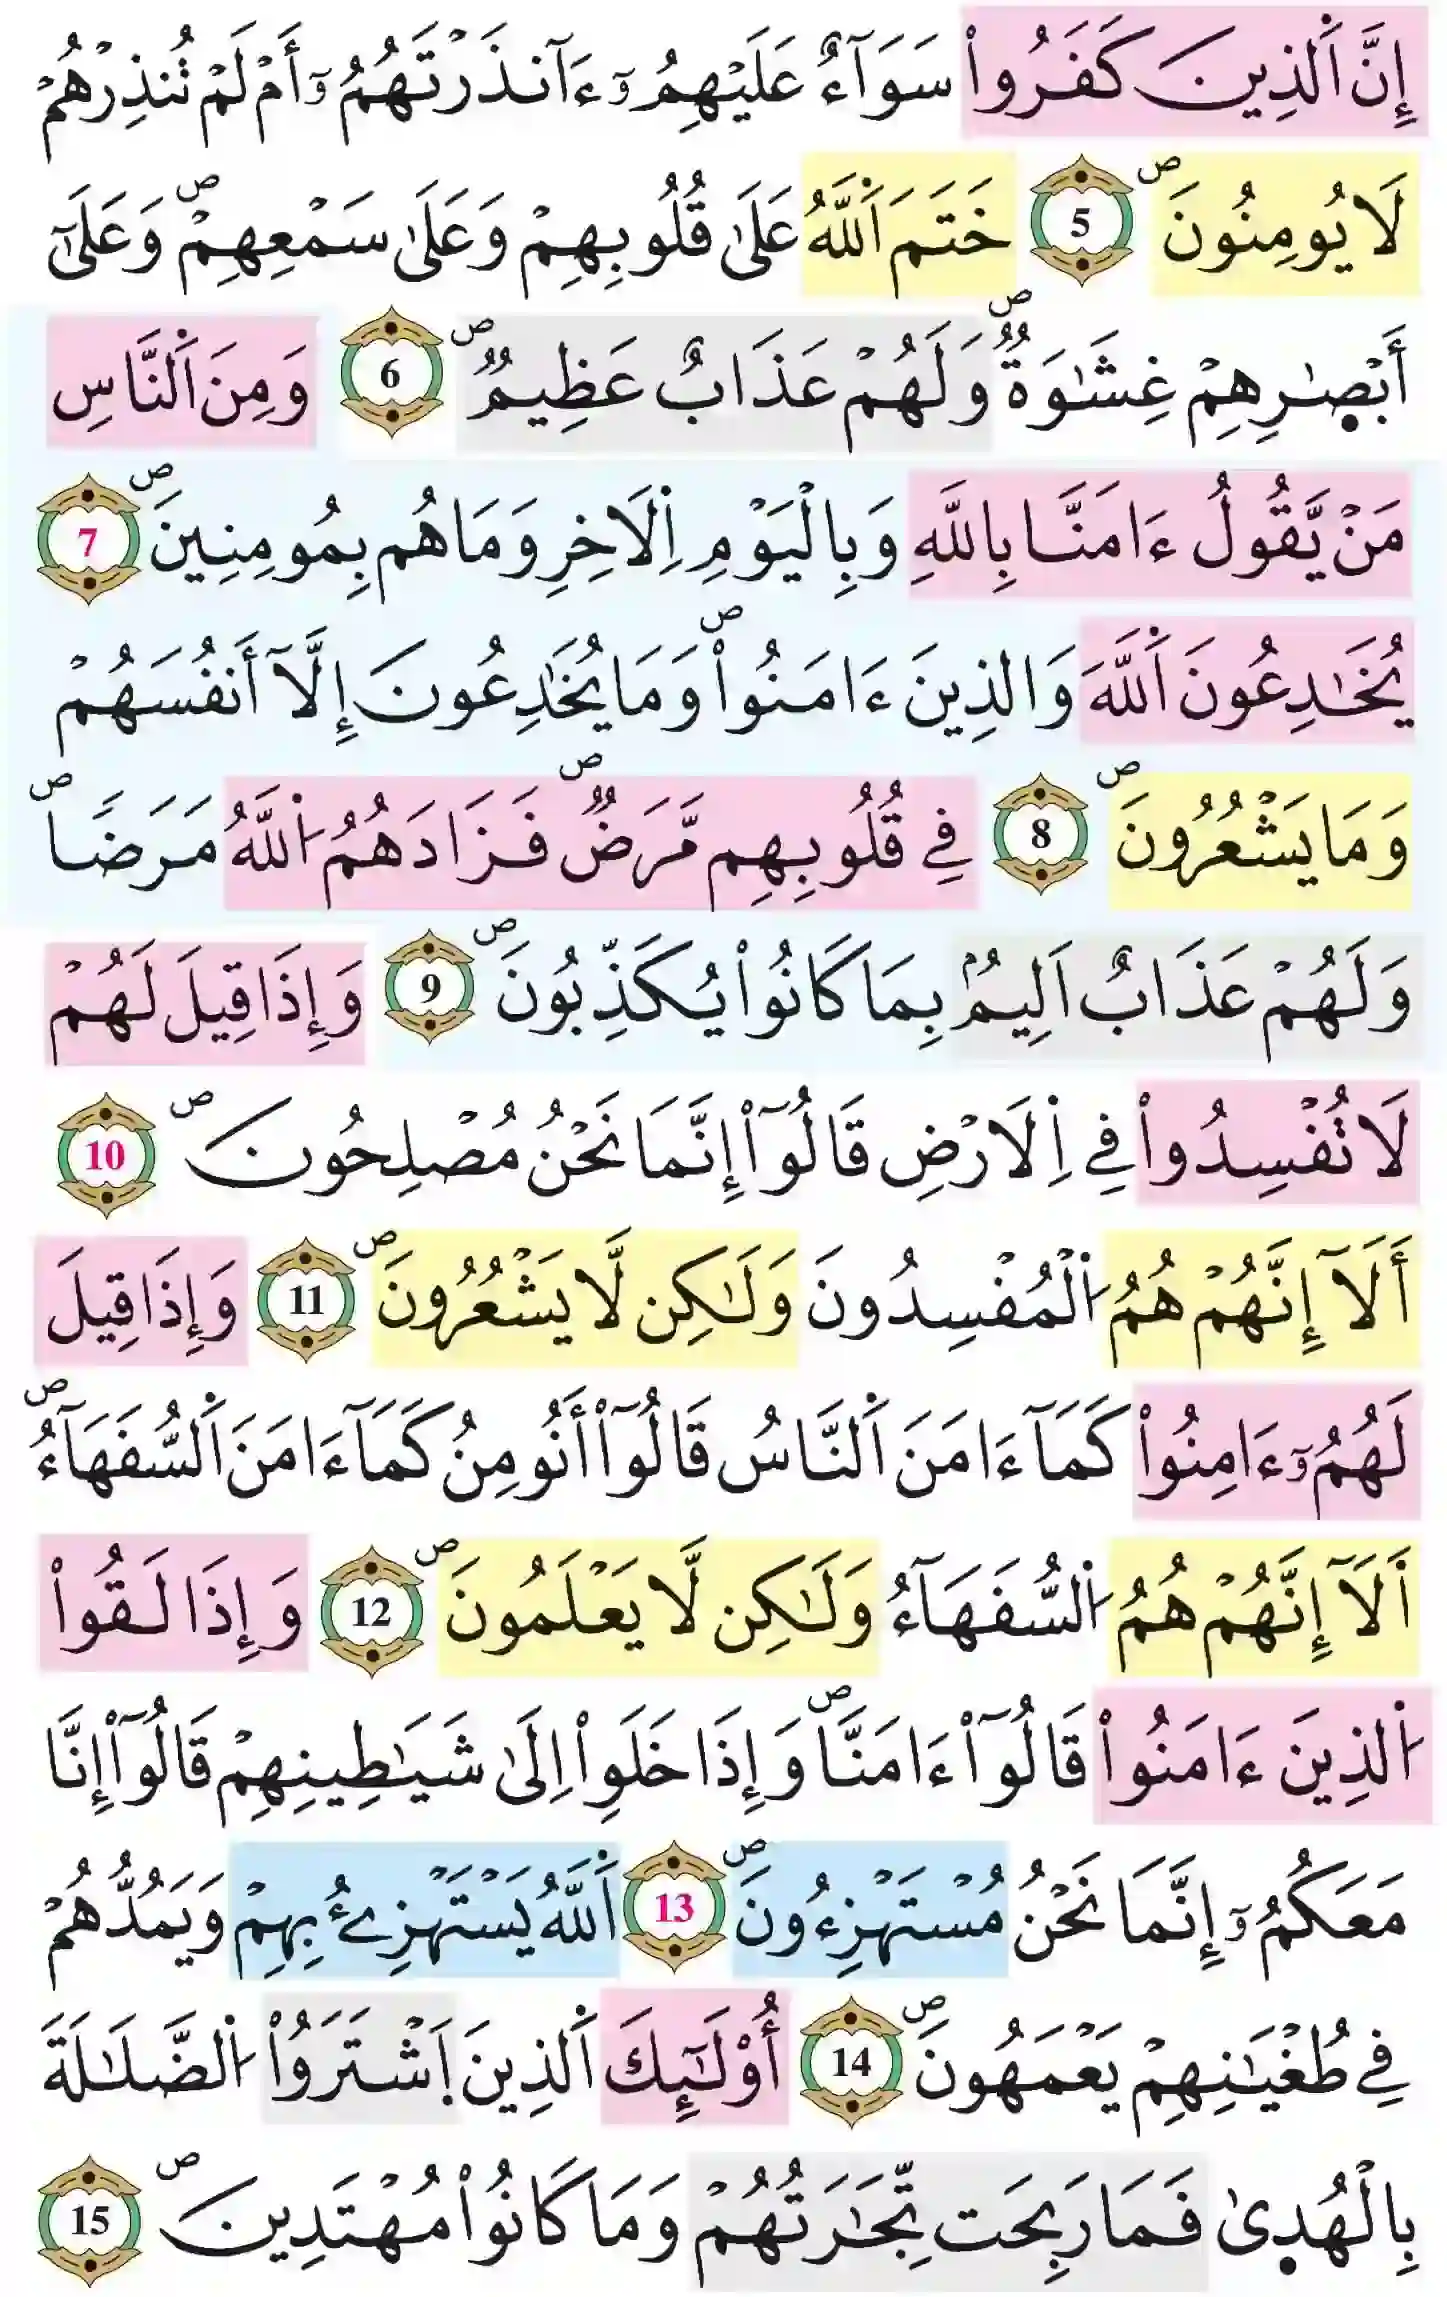 إِنَّ اَ۬لذِينَ كَفَرُواْ سَوَآءٌ عَلَيْهِمُۥٓ ءَآنذَرْتَهُمُۥٓ أَمْ لَمْ تُنذِرْهُمْ
لَا يُومِنُونَۖ 5 خَتَمَ اَ۬للَّهُ عَلَىٰ قُلُوبِهِمْ وَعَلَىٰ سَمْعِهِمْۖ وَعَلَىٰٓ
أَبْصٰ۪رِهِمْ غِشَٰوَةٞۖ وَلَهُمْ عَذَابٌ عَظِيمٞۖ 6 وَمِنَ اَ۬لنَّاسِ
مَنْ يَّقُولُ ءَامَنَّا بِاللَّهِ وَبِالْيَوْمِ اِ۬لَاخِرِ وَمَا هُم بِمُومِنِينَۖ 7
يُخَٰدِعُونَ اَ۬للَّهَ وَالذِينَ ءَامَنُواْۖ وَمَا يُخَٰدِعُونَ إِلَّآ أَنفُسَهُمْ
وَمَا يَشْعُرُونَۖ 8 فِي قُلُوبِهِم مَّرَضٞۖ فَزَادَهُمُ اُ۬للَّهُ مَرَضاٗۖ
وَلَهُمْ عَذَابٌ اَلِيمُۢ بِمَا كَانُواْ يُكَذِّبُونَۖ 9 وَإِذَا قِيلَ لَهُمْ
لَا تُفْسِدُواْ فِي اِ۬لَارْضِ قَالُوٓاْ إِنَّمَا نَحْنُ مُصْلِحُونَۖ 10
أَلَآ إِنَّهُمْ هُمُ اُ۬لْمُفْسِدُونَ وَلَٰكِن لَّا يَشْعُرُونَۖ 11 وَإِذَا قِيلَ
لَهُمُۥٓ ءَامِنُواْ كَمَآ ءَامَنَ اَ۬لنَّاسُ قَالُوٓاْ أَنُومِنُ كَمَآ ءَامَنَ اَ۬لسُّفَهَآءُۖ
أَلَآ إِنَّهُمْ هُمُ اُ۬لسُّفَهَآءُ وَلَٰكِن لَّا يَعْلَمُونَۖ 12 وَإِذَا لَقُواْ
اُ۬لذِينَ ءَامَنُواْ قَالُوٓاْ ءَامَنَّاۖ وَإِذَا خَلَوِاْ اِلَىٰ شَيَٰطِينِهِمْ قَالُوٓاْ إِنَّا
مَعَكُمُۥٓ إِنَّمَا نَحْنُ مُسْتَهْزِءُونَۖ 13 اَ۬للَّهُ يَسْتَهْزِئُ بِهِمْ وَيَمُدُّهُمْ
فِي طُغْيَٰنِهِمْ يَعْمَهُونَۖ 14 أُوْلَٰٓئِكَ اَ۬لذِينَ اَ۪شْتَرَوُاْ اُ۬لضَّلَٰلَةَ
بِالْهُد۪ىٰ فَمَا رَبِحَت تِّجَٰرَتُهُمْ وَمَا كَانُواْ مُهْتَدِينَۖ 15